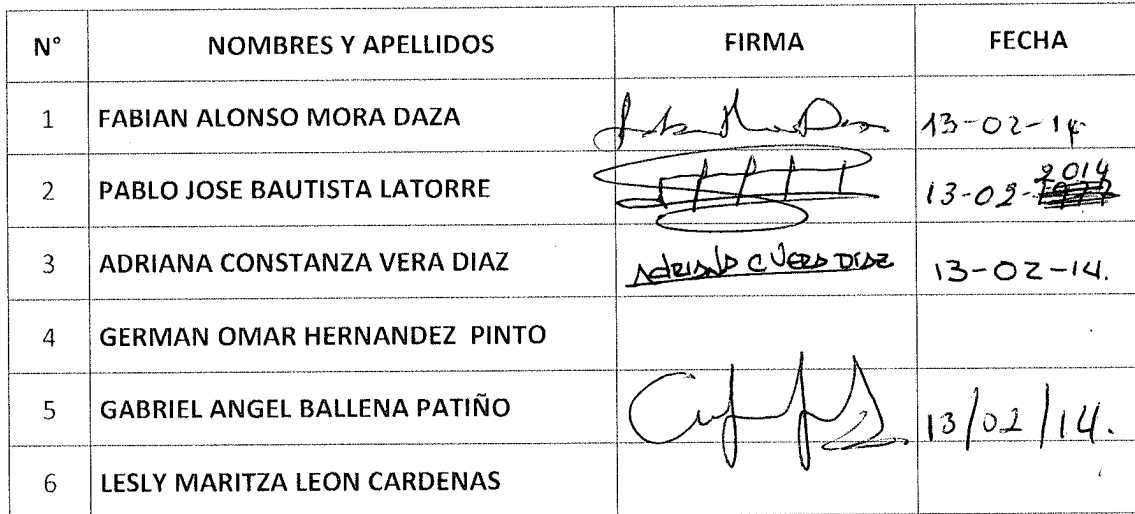 N° NOMBRES Y APELLIDOS FIRMA FECHA
1 FABIAN ALONSO MORA DAZA 13-02-14
2 PABLO JOSE BAUTISTA LATORRE 13-02-2014
3 ADRIANA CONSTANZA VERA DIAZ ADRIANA C VERA DIAZ 13-02-14.
4 GERMAN OMAR HERNANDEZ PINTO
5 GABRIEL ANGEL BALLENA PATIÑO 13/02/14.
6 LESLY MARITZA LEON CARDENAS